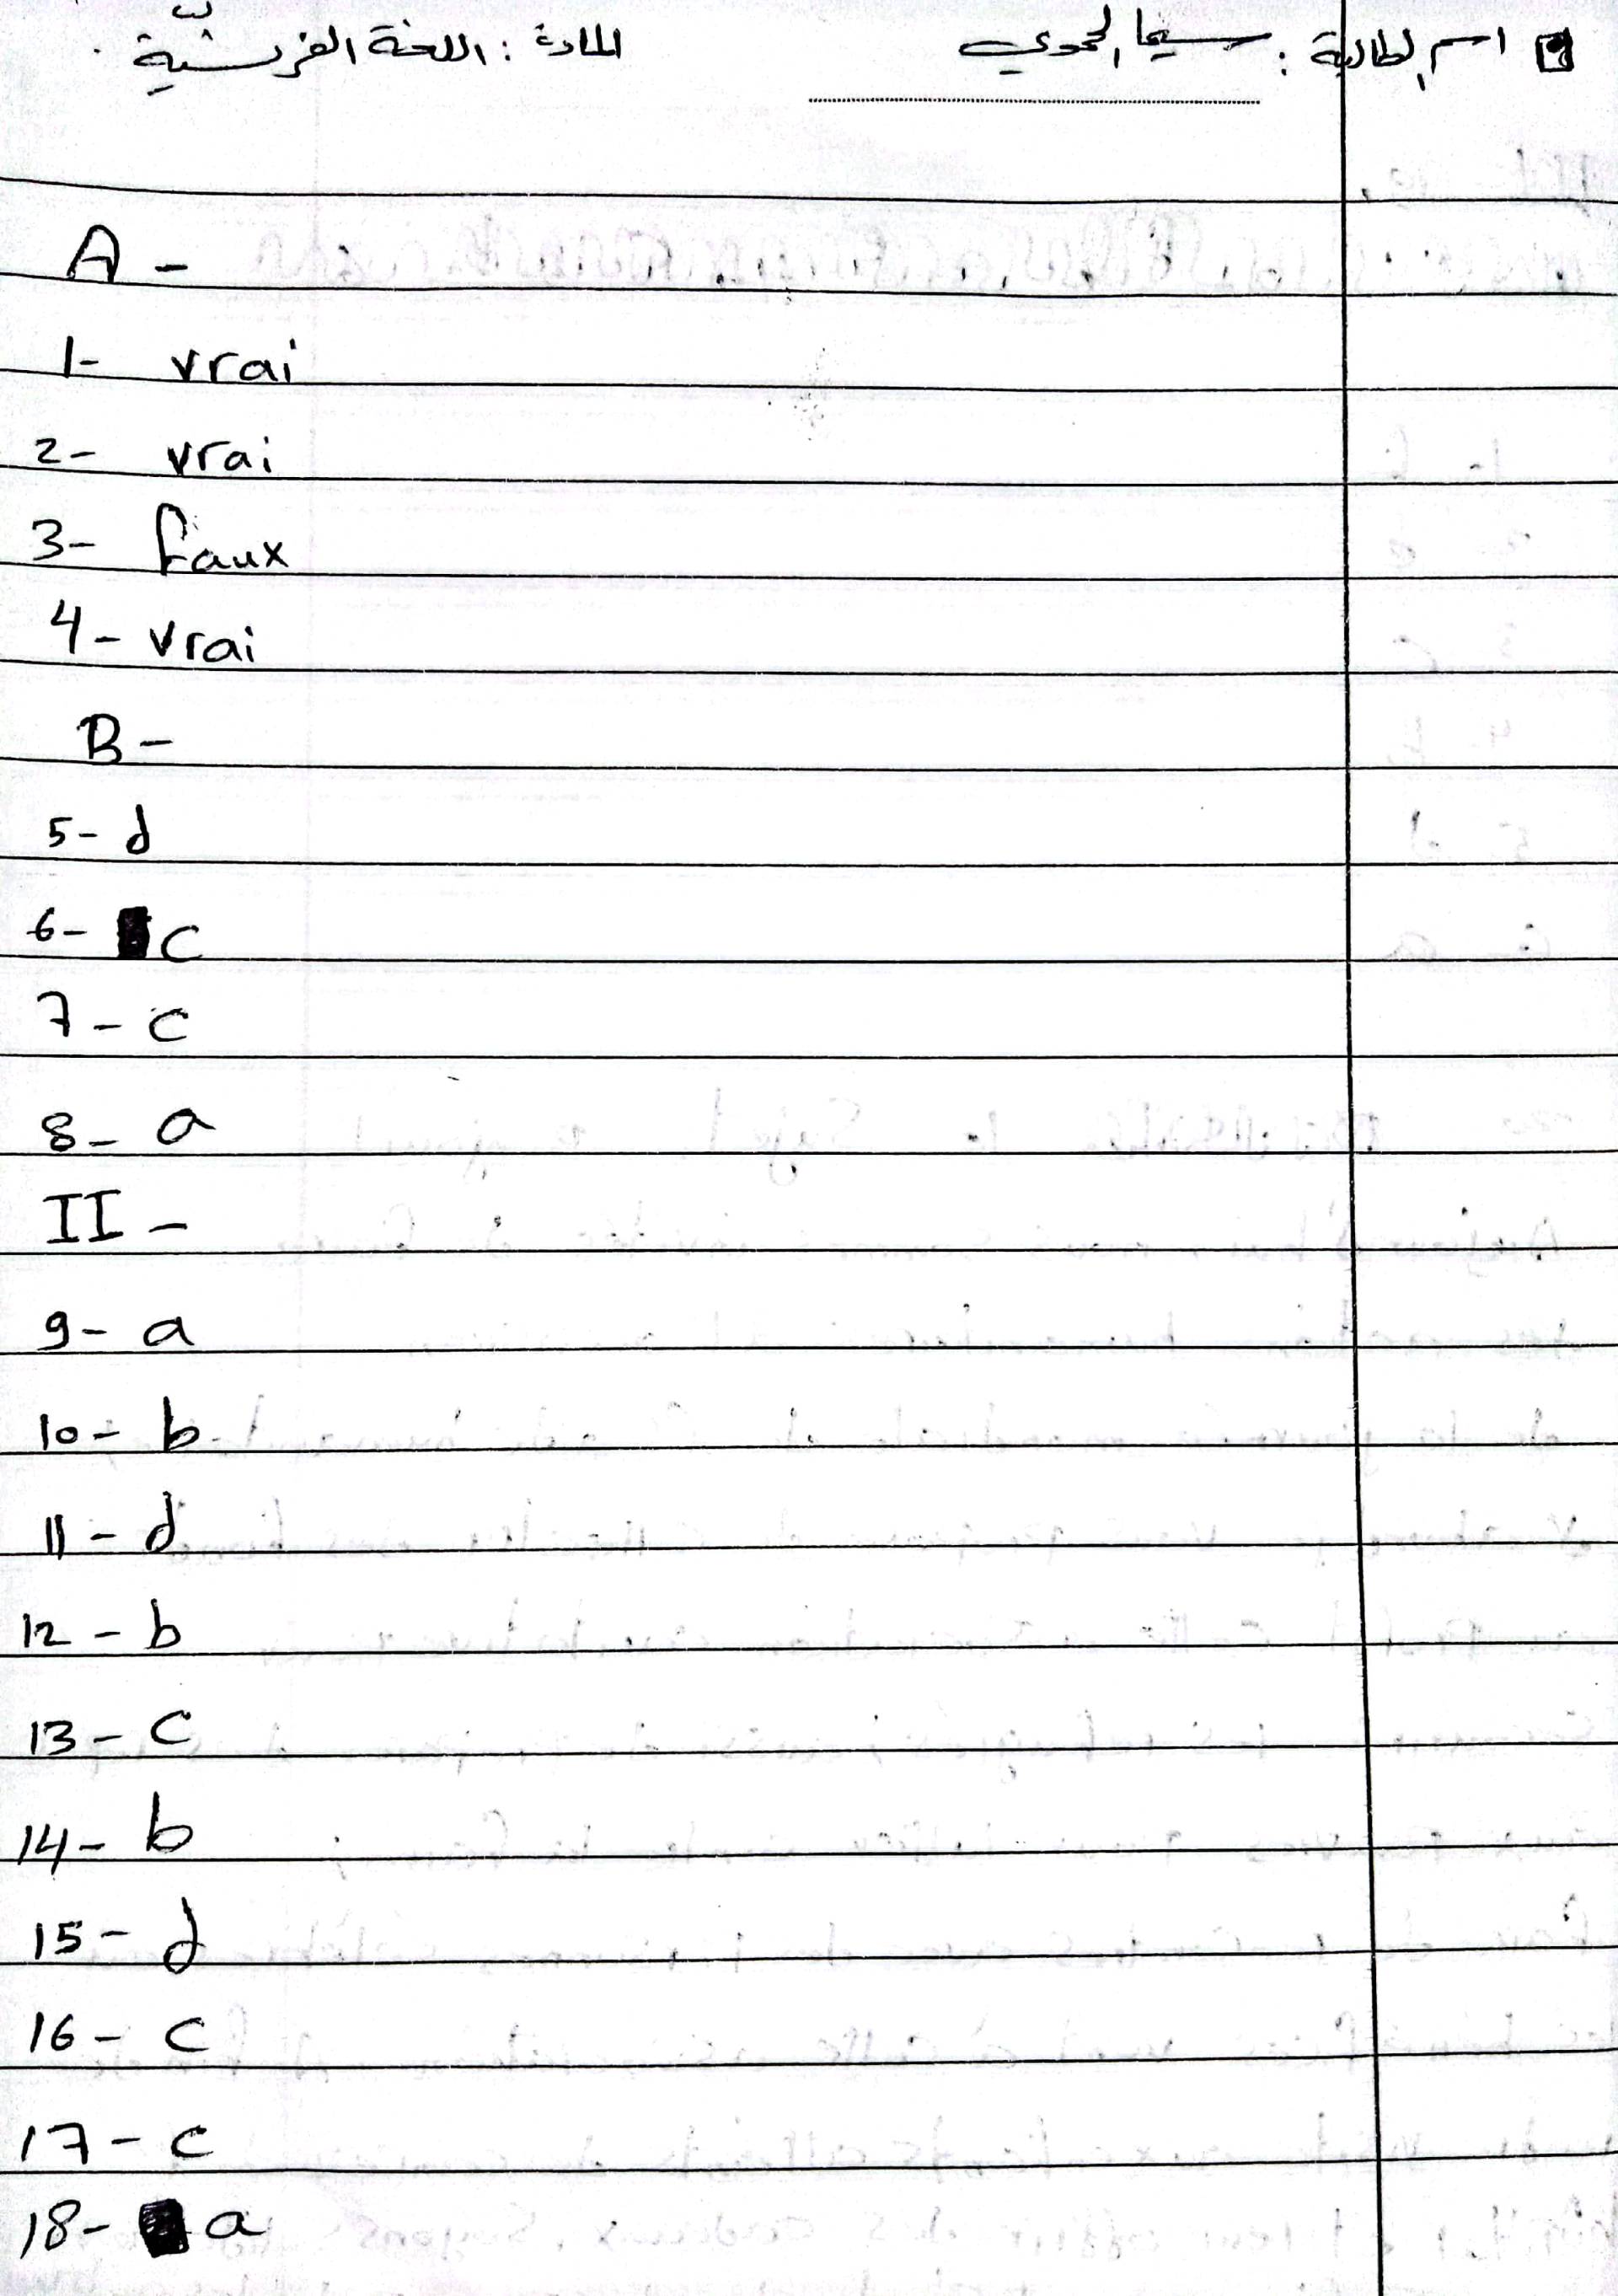 اسم الطالبة : سيما الحموي المادة : اللغة الفرنسيّة .
A -
1- vrai
2- vrai
3- faux
4- vrai
B -
5- d
6- c
7- c
8- a
II -
9- a
10- b
11- d
12- b
13- c
14- b
15- d
16- c
17- c
18- a